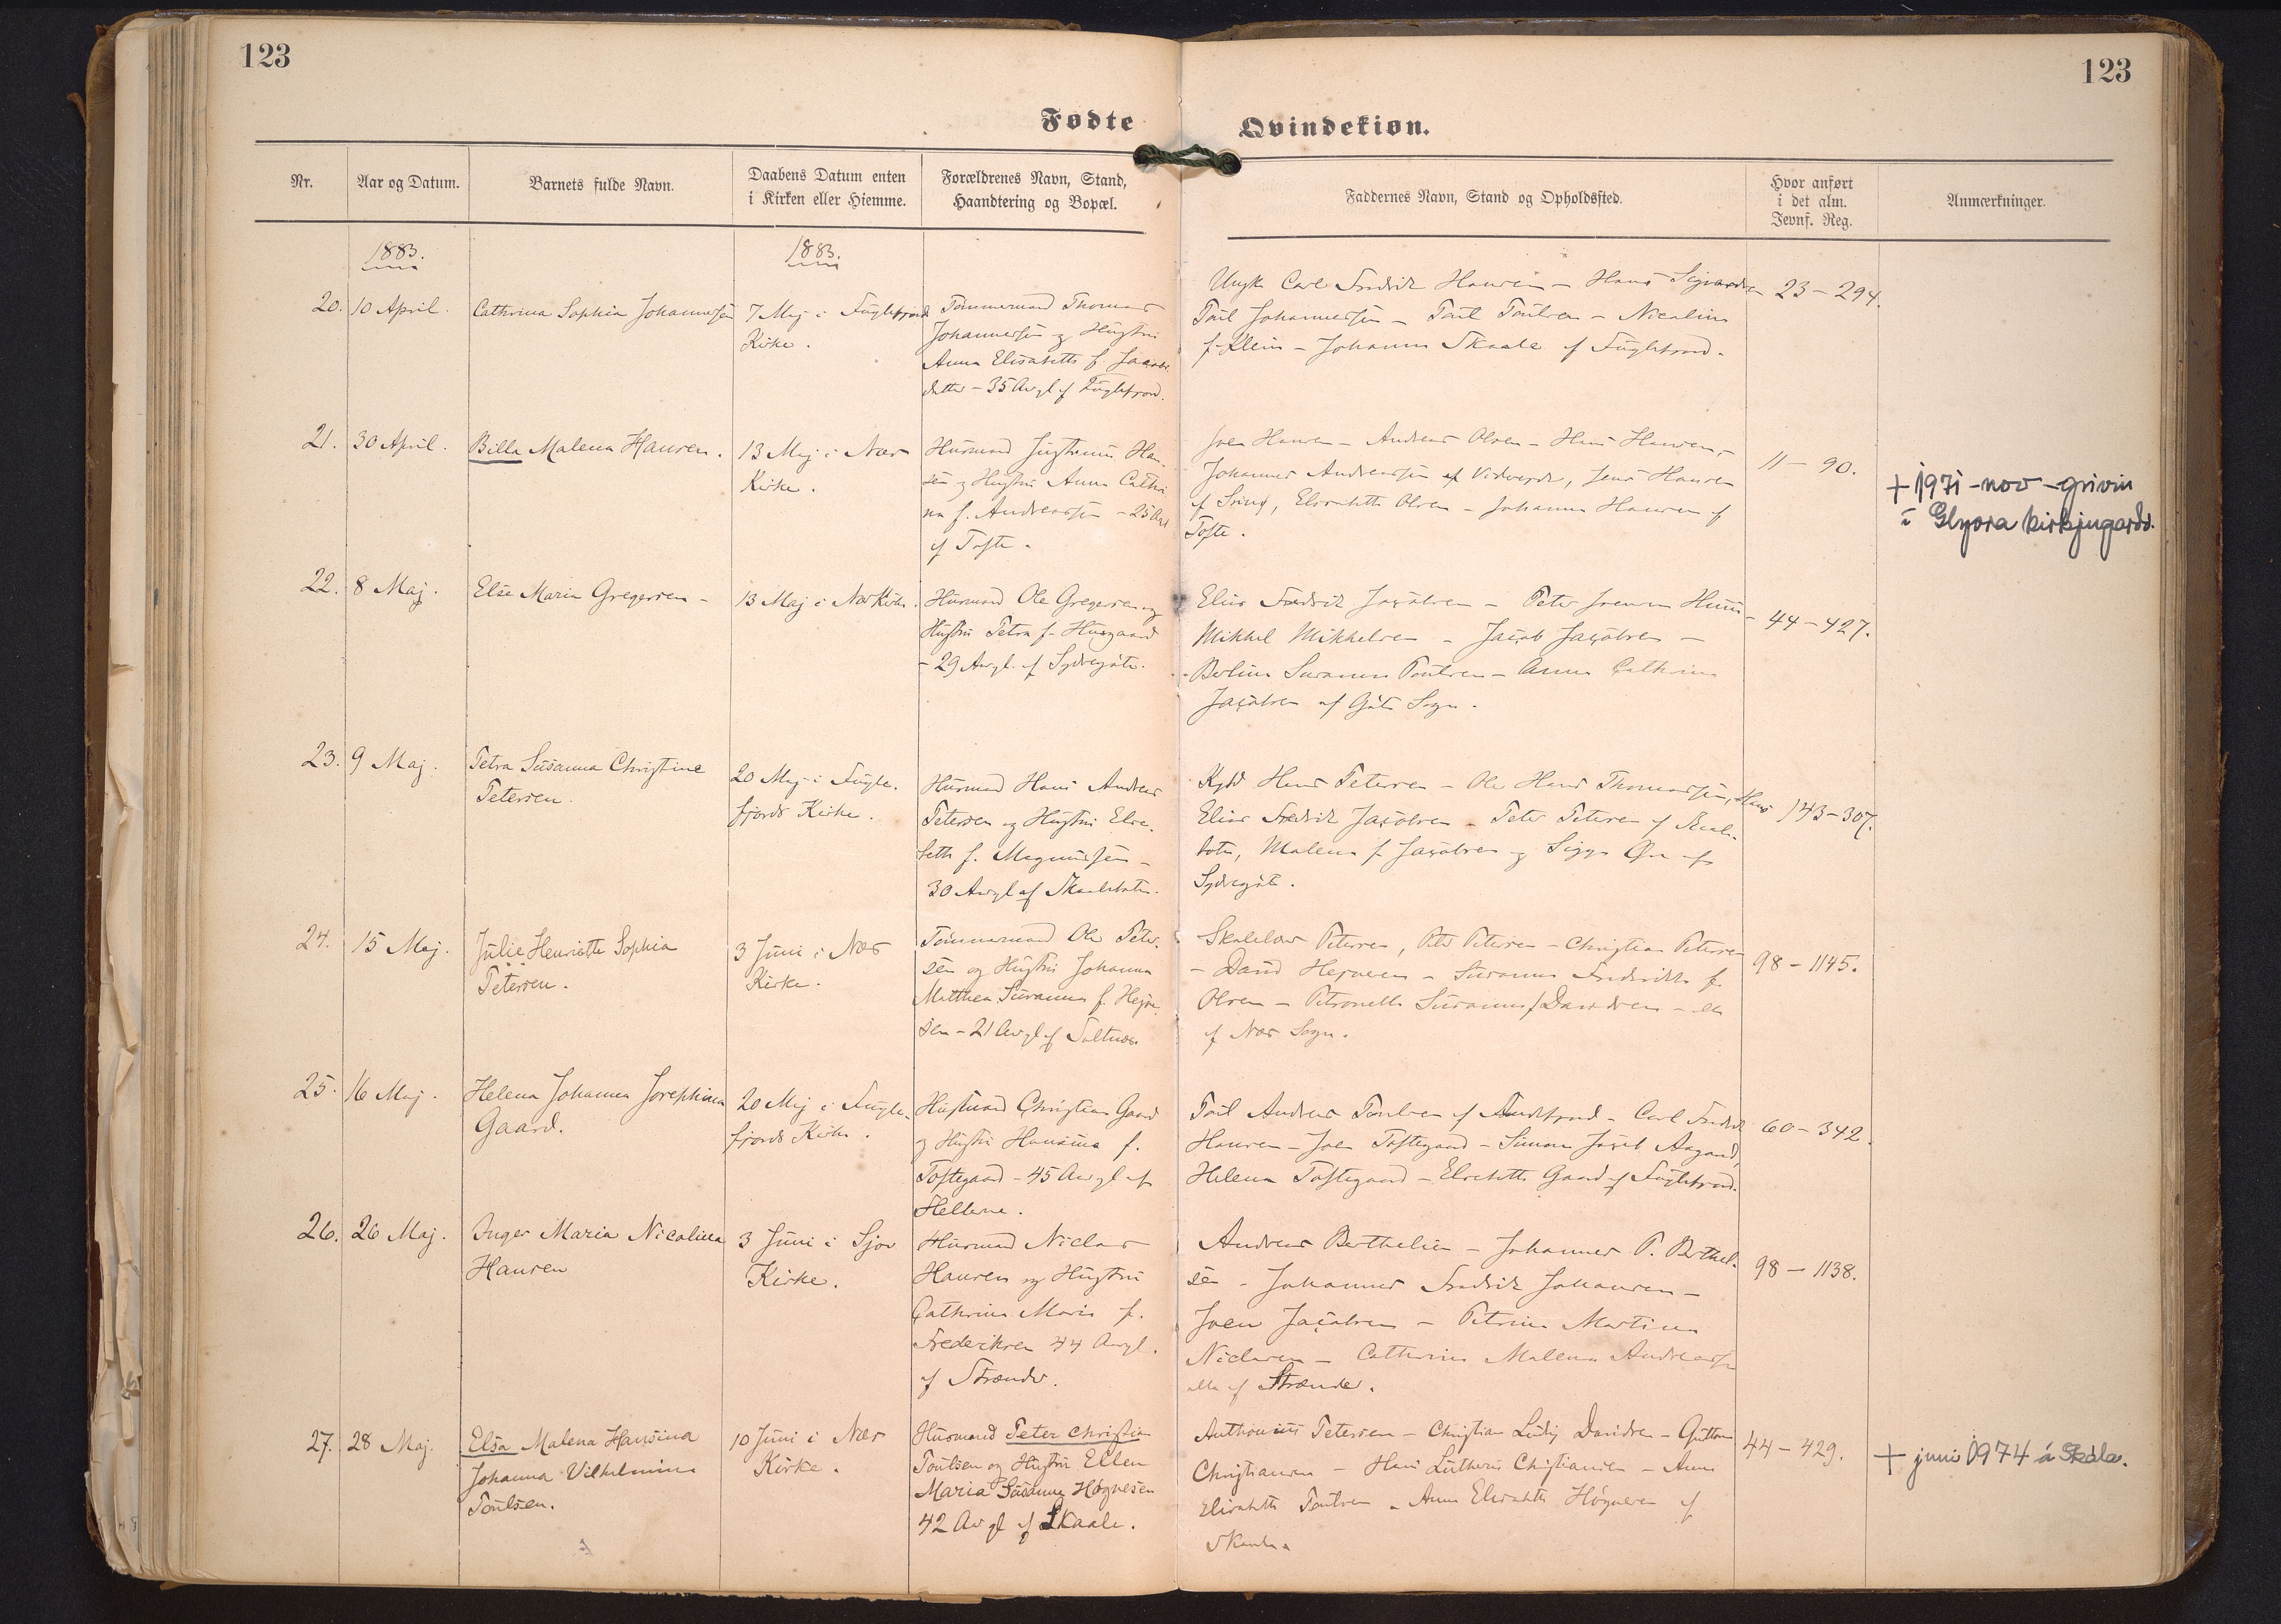 123
123
Fødte
Qvindekiøn.
Nr.
Aar og Datum.
Barnets fulde Navn.
Daabens Datum enten
i Kirken eller Hiemme.
Forældrenes Navn, Stand,
Haandtering og Bopæl.
Faddernes Navn, Stand og Opholdssted.
Hvor anført
i det alm.
Jevnf. Reg.
Anmærkninger.
1883.
1883.
20.
10 April.
Cathrina Sophia Johannesen
7 Maj i Fuglefjord
Kirke.
Tømmermand Thomas
Johannesen og Hustru
Anna Elisabeth f.
datter - 35 Aar gl af Fuglefjord.
Ungk Carl Fredrik Hansen - Hans
Poul Johannesen - Poul Poulsen - Nicolina
f. Klein - Johanna Skaale af Fuglefjord.
23 - 294.
21.
30 April.
Billa Malena Hansen.
13 Maj i Næs
Kirke.
Husmand Justinus Han-
sen og Hustru Anna Cathri
na f. Andreassen - 25 Aar
af Tofte.
Joen Hansen - Andreas Olsen - Hans Hansen,
Johannes Andreassen af Viderejde, Jens Hansen
af, Elisabeth Olsen - Johanna Hansen af
Tofte.
11 - 90.
+ 1971 - nov - grivin
í Glyvra kirkjugarð.
22.
8 Maj.
Else Maria Gregersen -
13 Maj i Næs Kirke.
Husmand Ole Gregersen og
Hustru Petra f. Husgaard
- 29 Aar gl. af Sydregöte.
Elias Fredrik Jacobsen - Peter Joensen Huus
Mikkel Mikkelsen - Jacob Jacobsen -
Susanna Poulsen - Anna Cathrina
Jacobsen af Göte Sogn.
44 - 427.
23.
9 Maj.
Petra Susanna Christine
Petersen.
20 Maj i Fugle-
fjords Kirke.
Husmand Hans Andreas
Petersen og Hustru Elsa-
beth f. Magnussen -
30 Aar gl af Skaalebotn.
Hans Petersen - Ole Hans Thomassen, Hans
Elias Fredrik Jacobsen - Peter Petersen af Skaale-
botn, Malena f. Jacobsen og
Sydregöte.
143 - 307.
24.
15 Maj.
Julie Henriette Sophia
Petersen.
3 Juni i Næs
Kirke.
Tømmermand Ole Peter-
sen og Hustru Johanna
Matthea Susanna f. Højne-
sen - 21 Aar gl af Saltnæs.
Skolelærer Petersen, Ole Petersen - Christian Petersen
- David Højnesen - Susanna Frederikke f.
Olsen - Petronella Susanna f Davidsen - alle
af Næs Sogn.
98 - 1145.
25.
16 Maj.
Helena Johanna Josephina
Gaard.
20 Maj i Fugle-
fjords Kirke.
Husmand Christian Gaard
og Hustru Hansina f.
Toftegaard - 45 Aar gl af
Hellerne.
Poul Andreas Poulsen af Andefjord - Carl Fredrik
Hansen - Joen Toftegaard - Simon Jacob Aagaard,
Helena Toftegaard - Elsebeth Gaard af Fuglefjord.
60 - 342.
26.
26 Maj.
Inger Maria Nicolina
Hansen
3 Juni i Sjov
Kirke.
Husmand Niclas
Hansen og Hustru
Cathrina Maria f.
Frederiksen 44 Aar gl.
af Strænder.
Andreas Berthelsen - Johannes P. Berthel-
sen - Johannes Fredrik Johansen -
Joen Jacobsen - Petrina Martina
Niclasen - Cathrina Malena Andreassen
alle af Strænder.
98 - 1138.
27.
28 Maj.
Elsa Malena Hansina
Johanna Vilhelmina
Poulsen.
10 Juni i Næs
Kirke.
Husmand Peter Christian
Poulsen og Hustru Ellen
Maria Susanna Høgnesen
42 Aar gl af Skaale.
Anthonius Petersen - Christian Ludvig Davidsen - Guttorm
Christiansen - Hans Lutherus Christiansen - Anna
Elisabeth Poulsen - Anna Elisabeth Høgnesen af
Skaale
44 - 429.
+ juni 1974 á Skála.